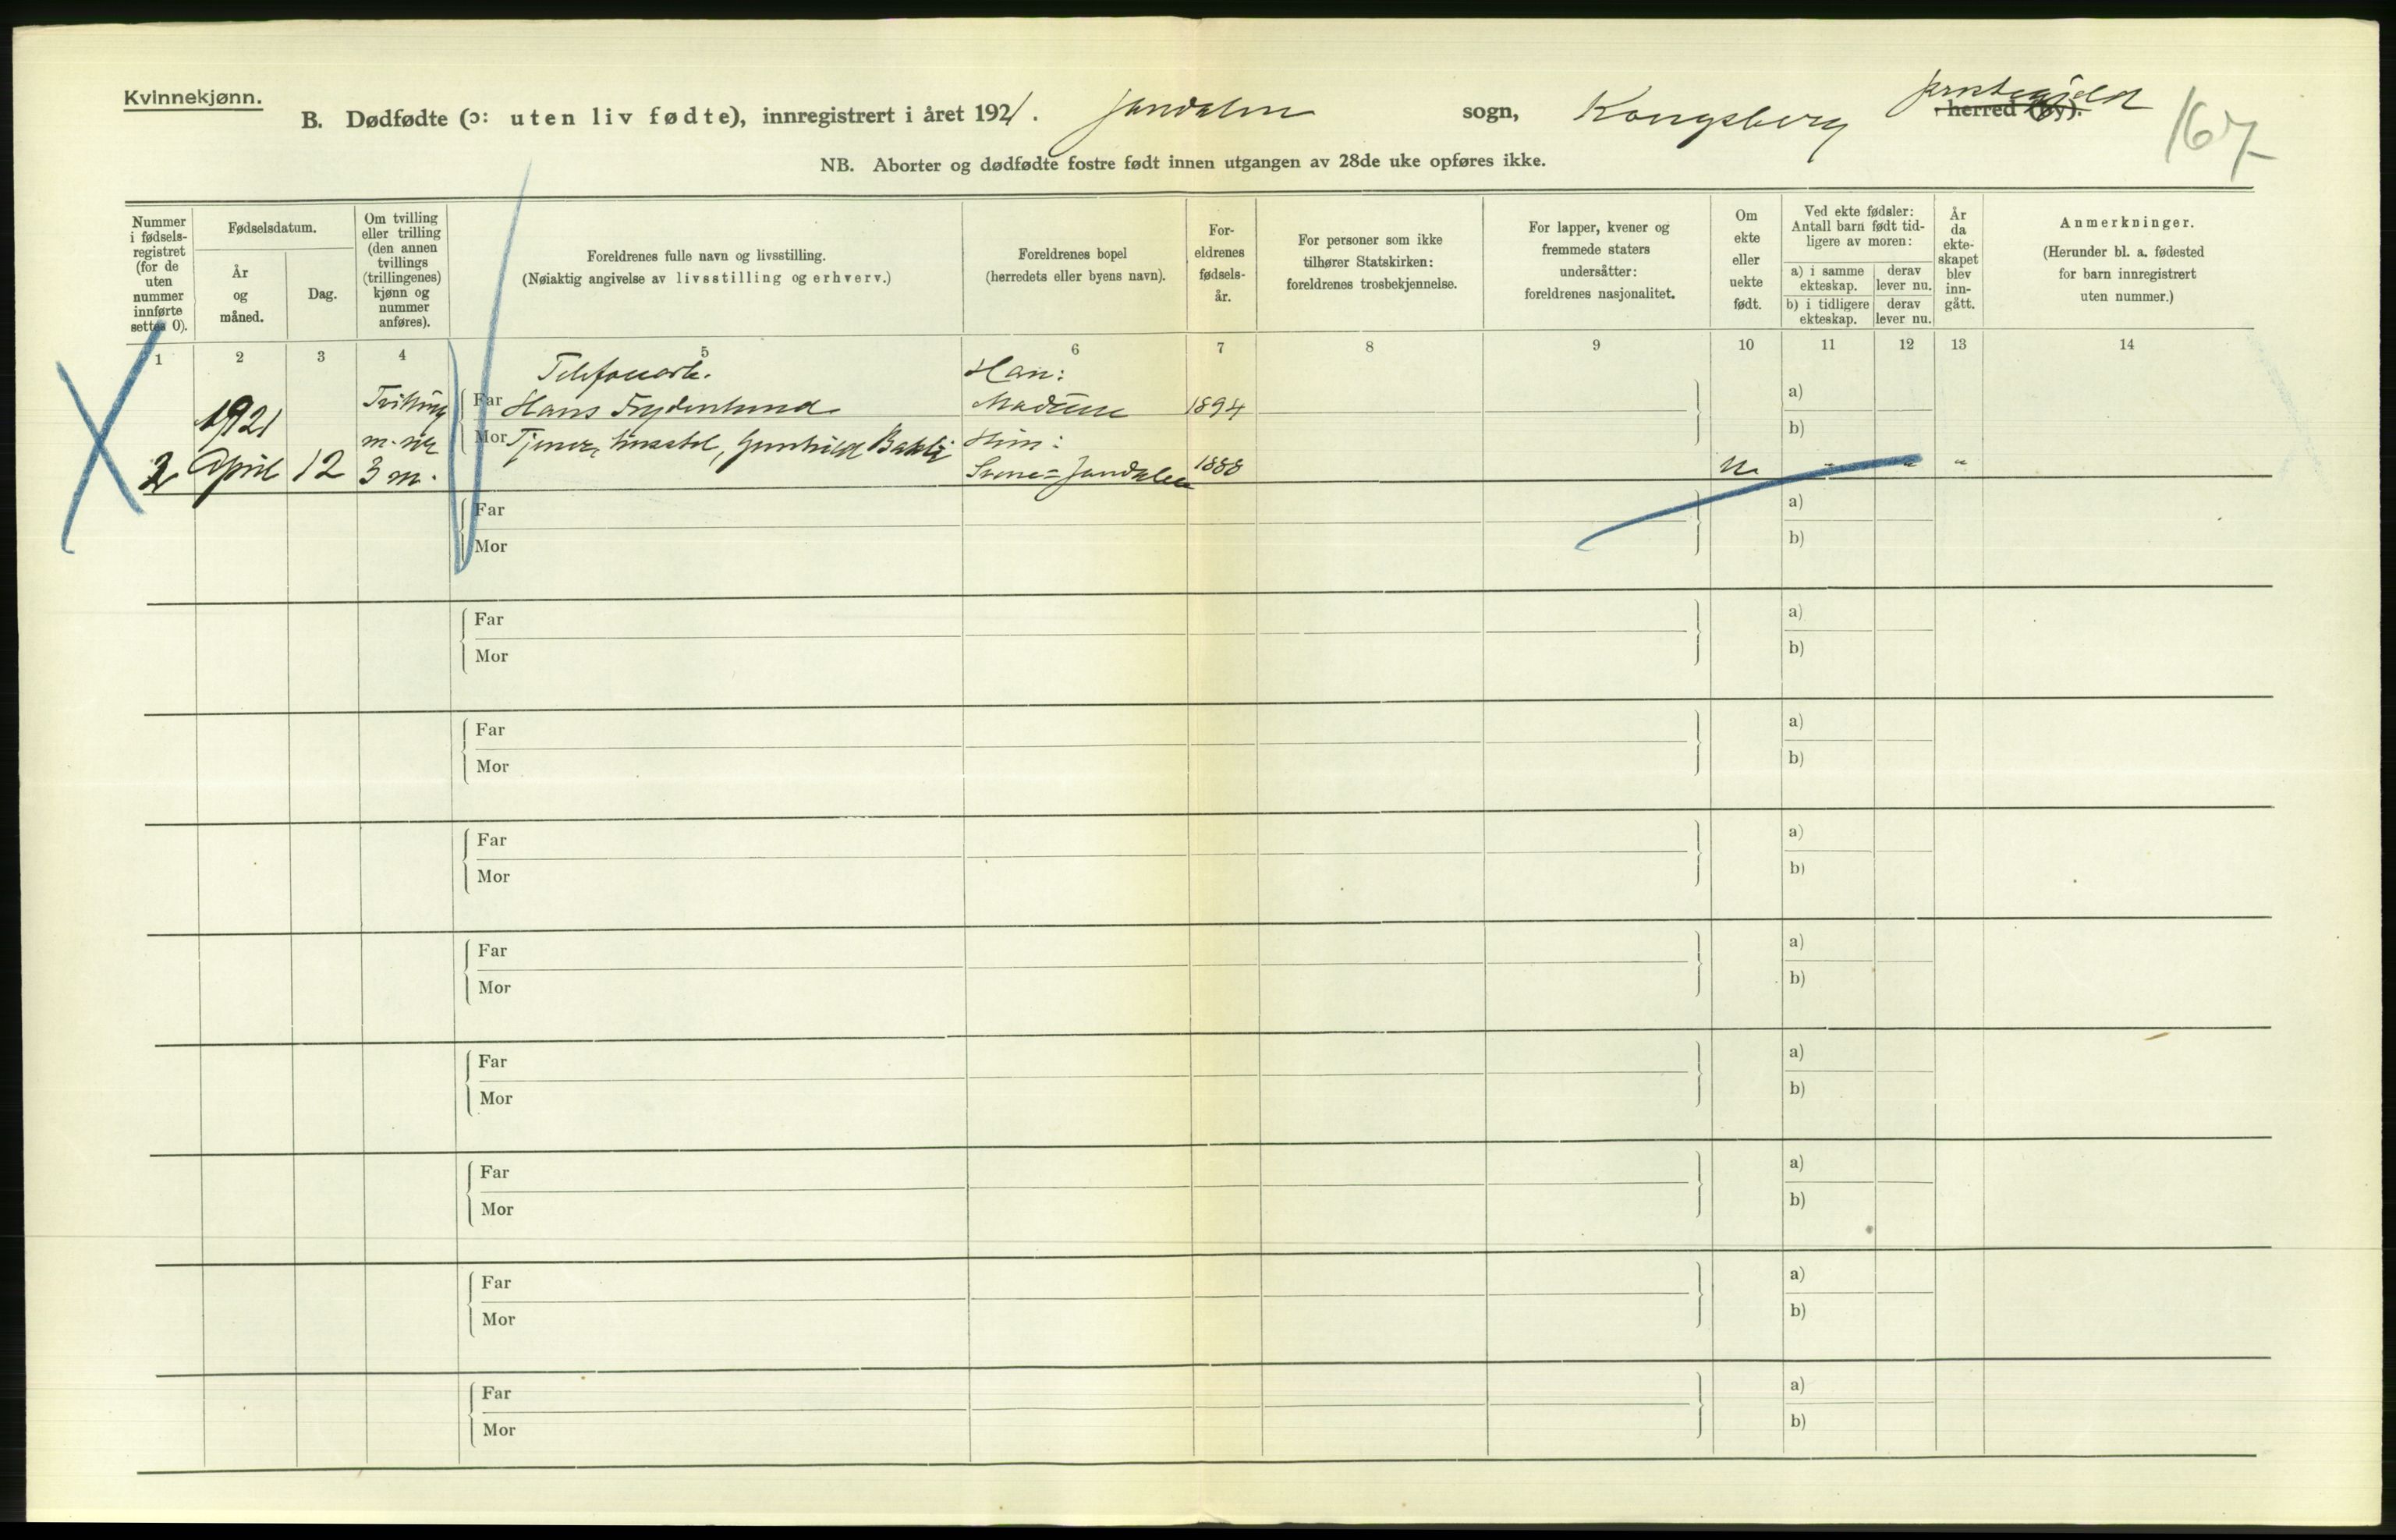 Kvinnekjønn.
B. Dødfødte (ɔ: uten liv fødte), innregistrert i året 1921. Jondalen sogn, Kongsberg prestegjeld herred (by).
167
NB. Aborter og dødfødte fostre født innen utgangen av 28de uke opføres ikke.
Nummer i fødsels-registret (for de uten nummer innførte settes 0).
Fødselsdatum.
År og måned.
Dag.
Om tvilling eller trilling (den annen tvillings (trillingenes) kjønn og nummer anføres).
Foreldrenes fulle navn og livsstilling.
(Nøiaktig angivelse av livsstilling og erhverv.)
Foreldrenes bopel
(herredets eller byens navn).
For-eldrenes fødsels-år.
For personer som ikke tilhører Statskirken: foreldrenes trosbekjennelse.
For lapper, kvener og fremmede staters undersåtter: foreldrenes nasjonalitet.
Om ekte eller uekte født.
Ved ekte fødsler: Antall barn født tid-ligere av moren:
a) i samme ekteskap.
derav lever nu.
b) i tidligere ekteskap.
derav lever nu.
År da ekte-skapet blev inn-gått.
Anmerkninger.
(Herunder bl. a. fødested for barn innregistrert uten nummer.)
1 2 3 4 5 6 7 8 9 10 11 12 13 14
Telefonarb. Han:
Tvilling Far Hans Frydenlund Madum 1894 a)
1921
m. nr Mor Tjener, husstel, Gunhild Bakli Hun: b)
2 April 12 3 m. Svene=Jondalen 1888 U. " " "
Far a)
Mor b)
Far a)
Mor b)
Far a)
Mor b)
Far a)
Mor b)
Far a)
Mor b)
Far a)
Mor b)
Far a)
Mor b)
Far a)
Mor b)
Far a)
Mor b)